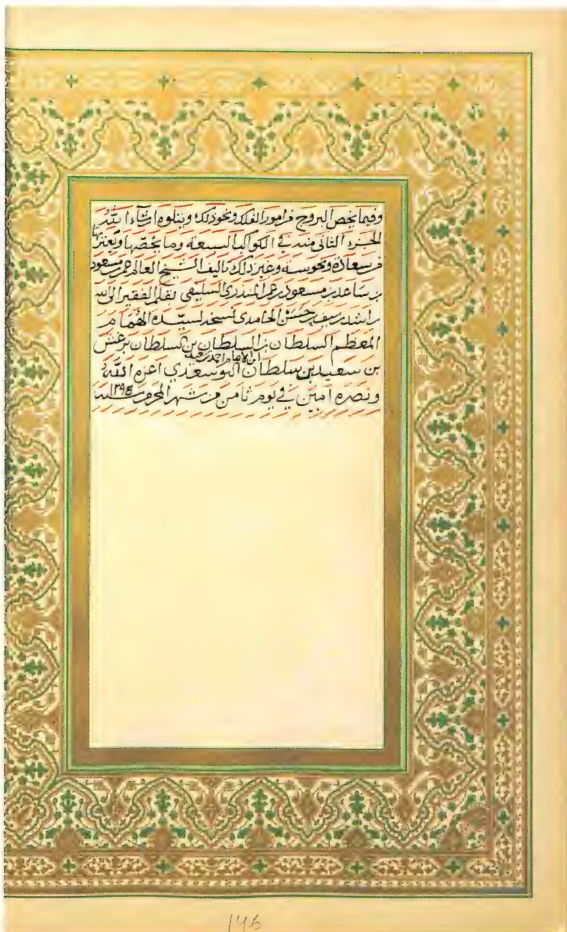 وفيما يخص البروج من امور الفلك ونحو ذلك ويتلوه انشاء الله
الجزء الثاني منه في الكواكب السبعة وما يخصها ويعتريها
من سعادة ونحوسة وغير ذلك تاليف الشيخ العالم عمر بن مسعود
بن ساعد بن مسعود بن عمر المنذري السليفي نقله الفقير الى الله
راشد بن سيف بن حسن الحامدي نسخه لسيده الهمام
المعظم السلطان بن السلطان بن السلطان برغش
بن سعيد بن سلطان ابن الامام احمد بن سعيد البوسعيدي اعزه الله
ونصره امين في يوم ثامن من شهر المحرم سنة
146